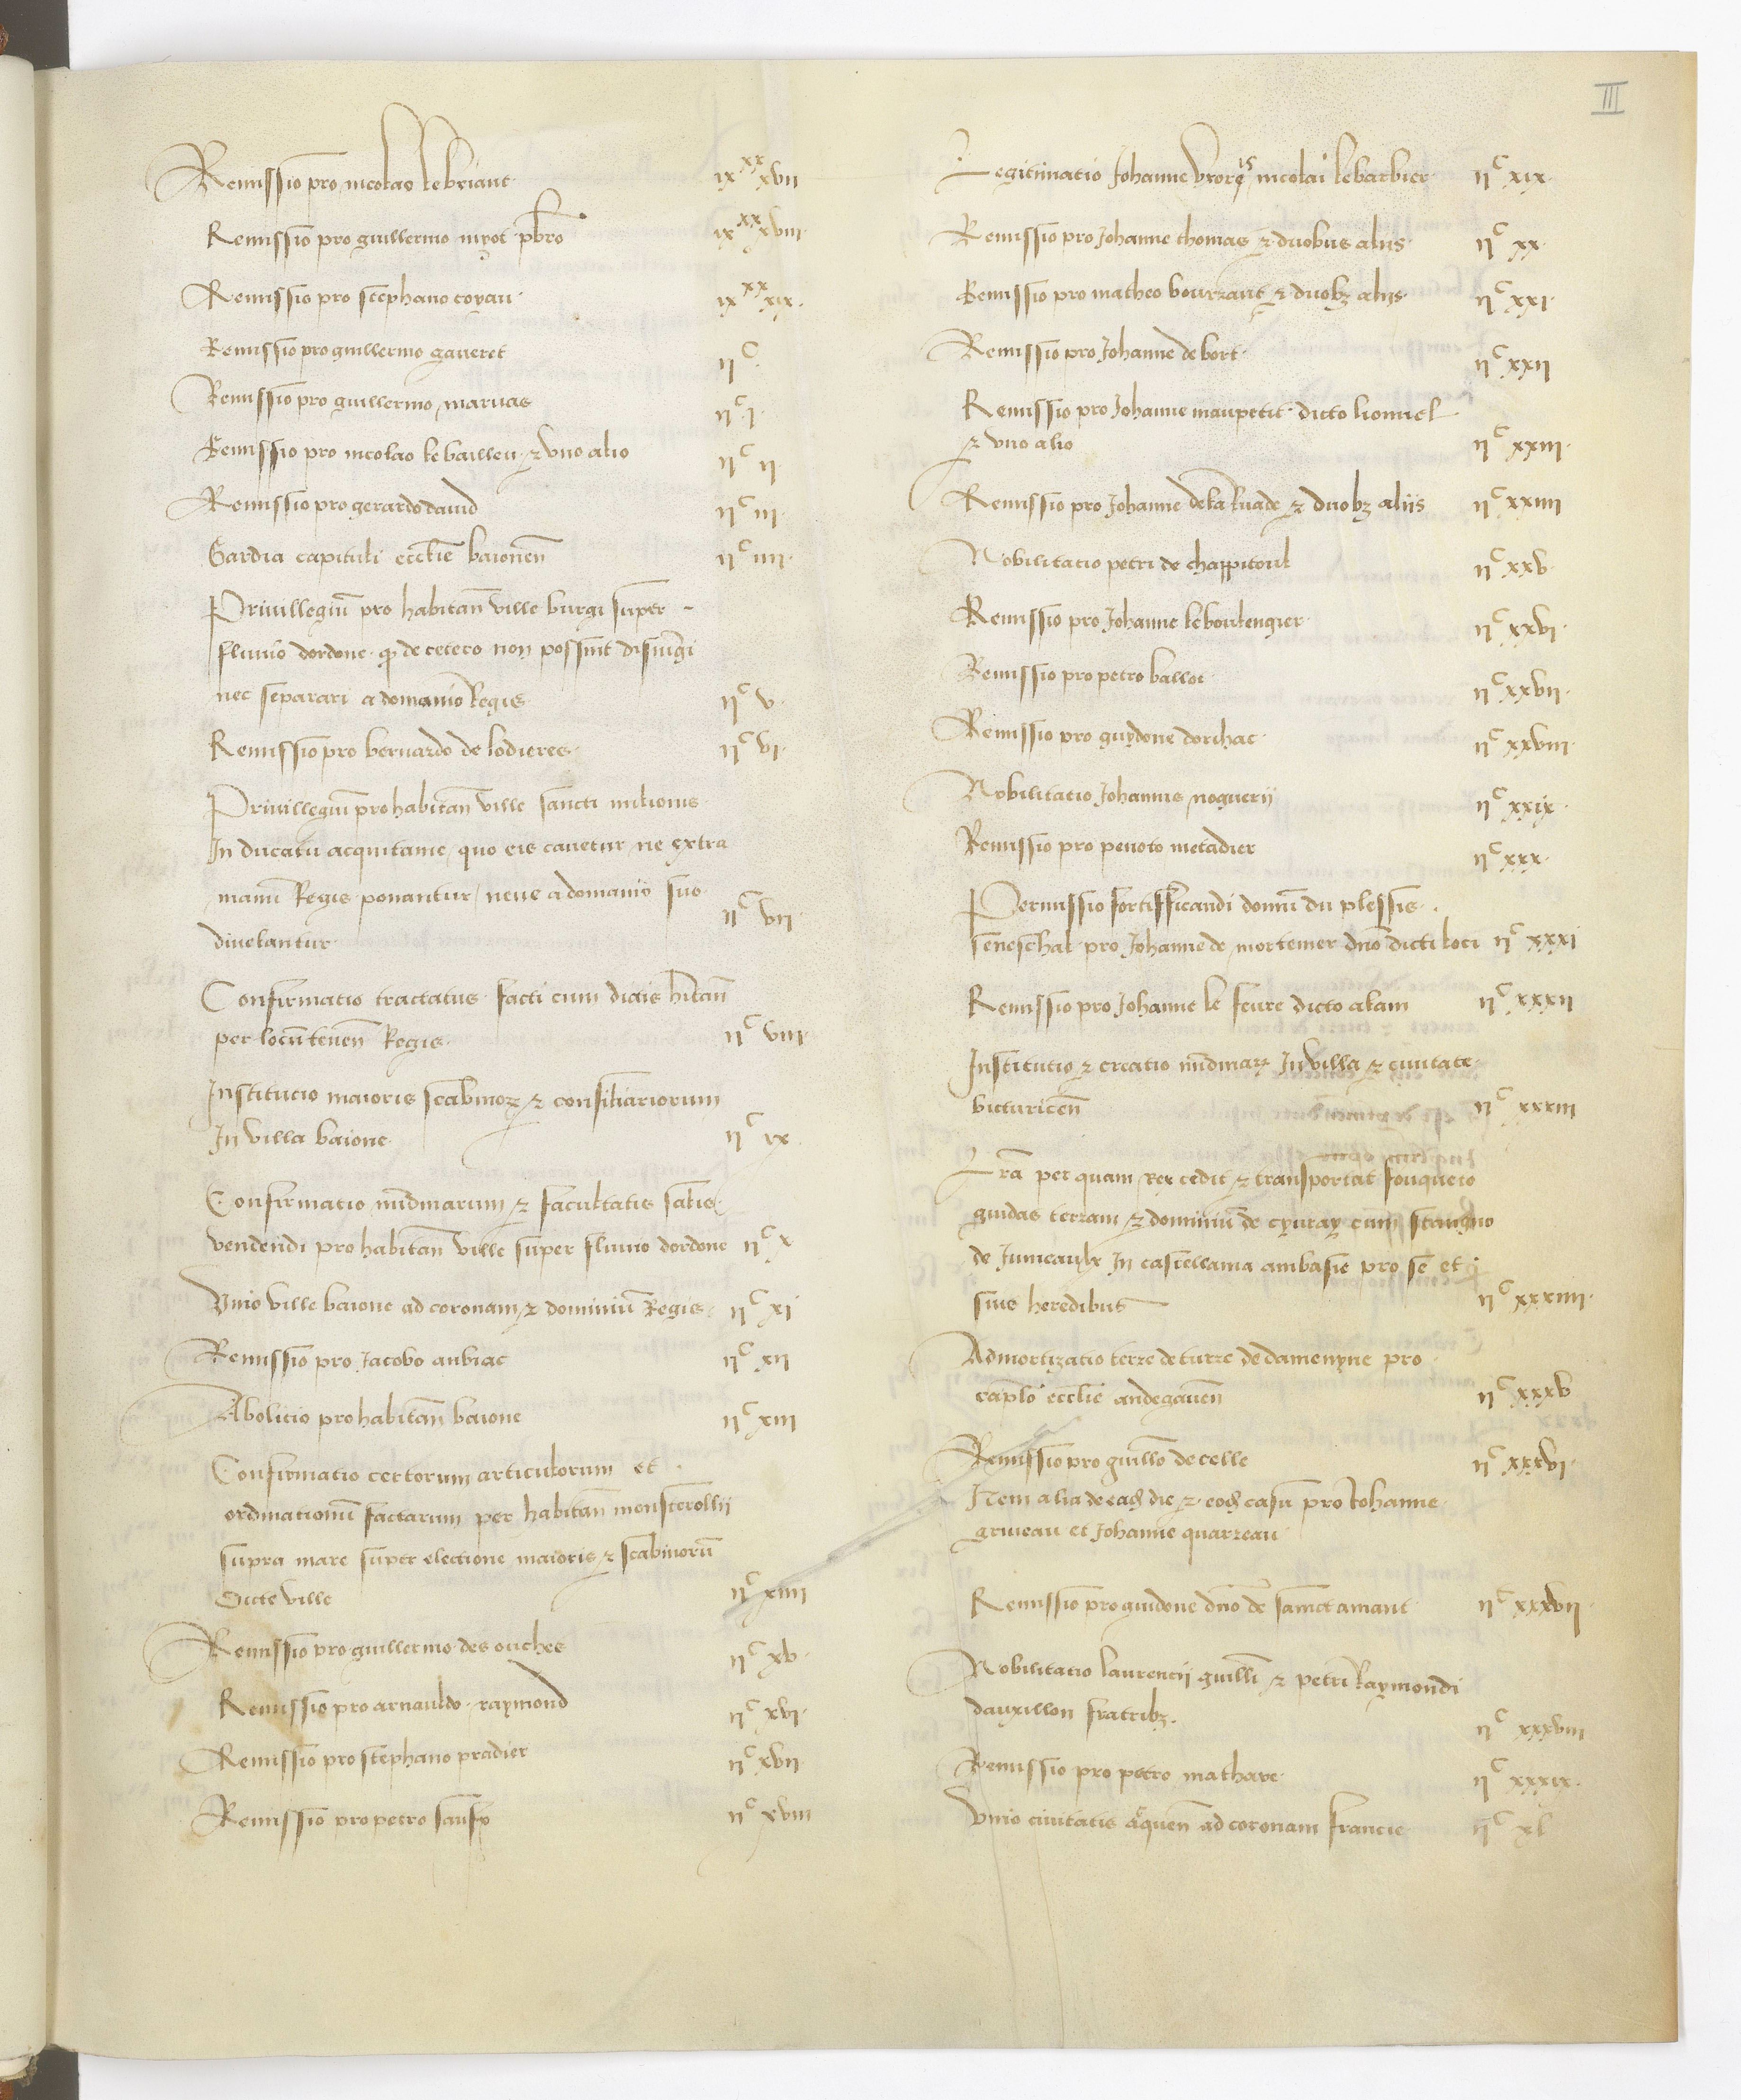 III
Remissio pro nicolao lebriant ix^xx xvii
Remissio pro guillermo myot pbro ix^xx xviii
Remissio pro stephano coyau ix^xx xix
Remissio pro guillermo gaueret ii^C
Remissio pro guillermo maruas ii^C i
Remissio pro nicolao le bailleu & vno alio ii^C ii
Remissio pro gerardo dauid ii^C iii
Gardia capituli ecclie baionen ii^C iiii
Priuillegiu pro habitan ville burgi super
fluuio dordone q de cetero non possint disiungi
nec separari a domanio Regis ii^C v
Remissio pro bernardo de lodieres ii^C vi
Priuillegiu pro habitan ville sancti milionis
In ducatu acquitanie quo eis cauetur ne extra
manu Regis ponantur neue a domanio suo ii^C vii
diuelantur
Confirmatio tractatus facti cum dictis hitan
per locutenen Regis ii^C viii
Institucio maioris scabinorz & consiliariorum
In villa baione ii^C ix
Confirmatio nudinarum & facultatis salis
vendendi pro habitan ville super fluuio dordone ii^C x
Vnio ville baione ad coronam & dominiu Regis ii^C xi
Remissio pro Jacobo aubiac ii^C xii
Abolicio pro habitan baione ii^C xiii
Confirmatio certorum articulorum et
ordinationu factarum per habitan monsterollii
supra mare super electione maioris & scabinoru
dicte ville ii^C xiiii
Remissio pro guillermo des ouches ii^C xv
Remissio pro arnauldo raymond ii^C xvi
Remissio pro stephano pradier ii^C xvii
Remissio pro petro ii^C xviii
Legitimatio Johanne vxoris nicolai lebarbier ii^C xix
Remissio pro Johanne thomas & duobus aliis ii^C xx
Remissio pro matheo bourzaut & duobz aliis ii^C xxi
Remissio pro Johanne de bort ii^C xxii
Remissio pro Johanne maupetit dicto lionnel
& vno alio ii^C xxiii
Remissio pro Johanne de la & duobz aliis ii^C xxiiii
Nobilitatio petri de chappitoul ii^C xxv
Remissio pro Johanne leboulengier ii^C xxvi
Remissio pro petro ballot ii^C xxvii
Remissio pro guydone dorilhac ii^C xxviii
Nobilitatio Johannis noguerii ii^C xxix
Remissio pro penoto metadier ii^C xxx
Permissio fortifficandi domu du plessis
seneschal pro Johanne de mortemer dno dicti loci ii^C xxxi
Remissio pro Johanne le feure dicto alain ii^C xxxii
Institutio & creatio nudinarz In villa & ciuitate
bituricen ii^C xxxiii
Lra per quam rex cedit & transportat fouqueto
guidas terram & dominiu de cyuray cum stangno
de Jumeaulx In castellania ambasie pro se et
suis heredibus ii^C xxxiiii
Admortizatio terre de turre de damenyne pro
caplo ecclie andegauen ii^C xxxv
Remissio pro guillo de celle ii^C xxxvi
Item alia de ead die & eod casu pro Johanne
griueau et Johanne quarreau
Remissio pro guidone dno de sainct amant ii^C xxxvii
Nobilitatio laurencii guilli & petri Raymondi
dauxillon fratribz ii^C xxxviii
Remissio pro petro mathare ii^C xxxix
Vnio ciuitatis aquen ad coronam francie ii^C xl